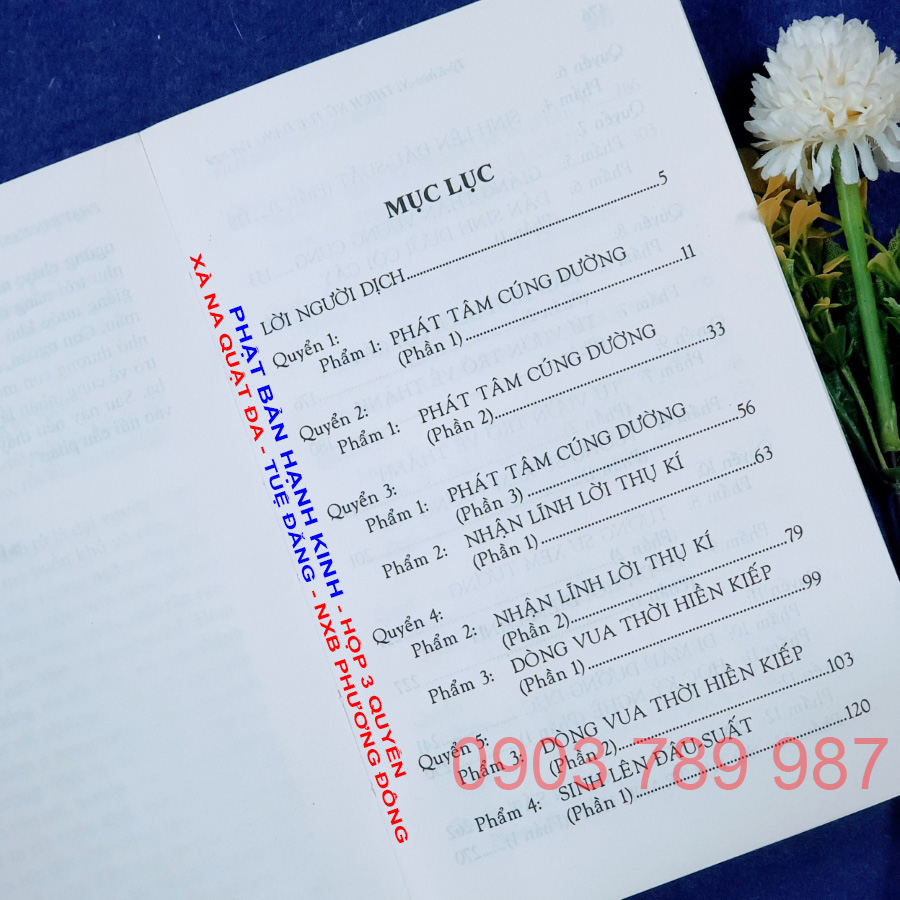 MỤC LỤC
LỜI NGƯỜI DỊCH..........5
Quyển 1:
Phẩm 1: PHÁT TÂM CÚNG DƯỜNG
(Phần 1)..........11
Quyển 2:
Phẩm 1: PHÁT TÂM CÚNG DƯỜNG
(Phần 2)..........33
Quyển 3:
Phẩm 1: PHÁT TÂM CÚNG DƯỜNG
(Phần 3)..........56
Phẩm 2: NHẬN LĨNH LỜI THỤ KÍ
(Phần 1)..........63
Quyển 4:
Phẩm 2: NHẬN LĨNH LỜI THỤ KÍ
(Phần 2)..........79
Phẩm 3: DÒNG VUA THỜI HIỀN KIẾP
(Phần 1)..........99
Quyển 5:
Phẩm 3: DÒNG VUA THỜI HIỀN KIẾP
(Phần 2)..........103
Phẩm 4: SINH LÊN ĐÂU-SUẤT
(Phần 1)..........120
PHẬT BẢN HẠNH KINH - HỘP 3 QUYỂN
XÀ NA QUẬT ĐA - TUỆ ĐĂNG - NXB PHƯƠNG ĐÔNG
0903 789 987